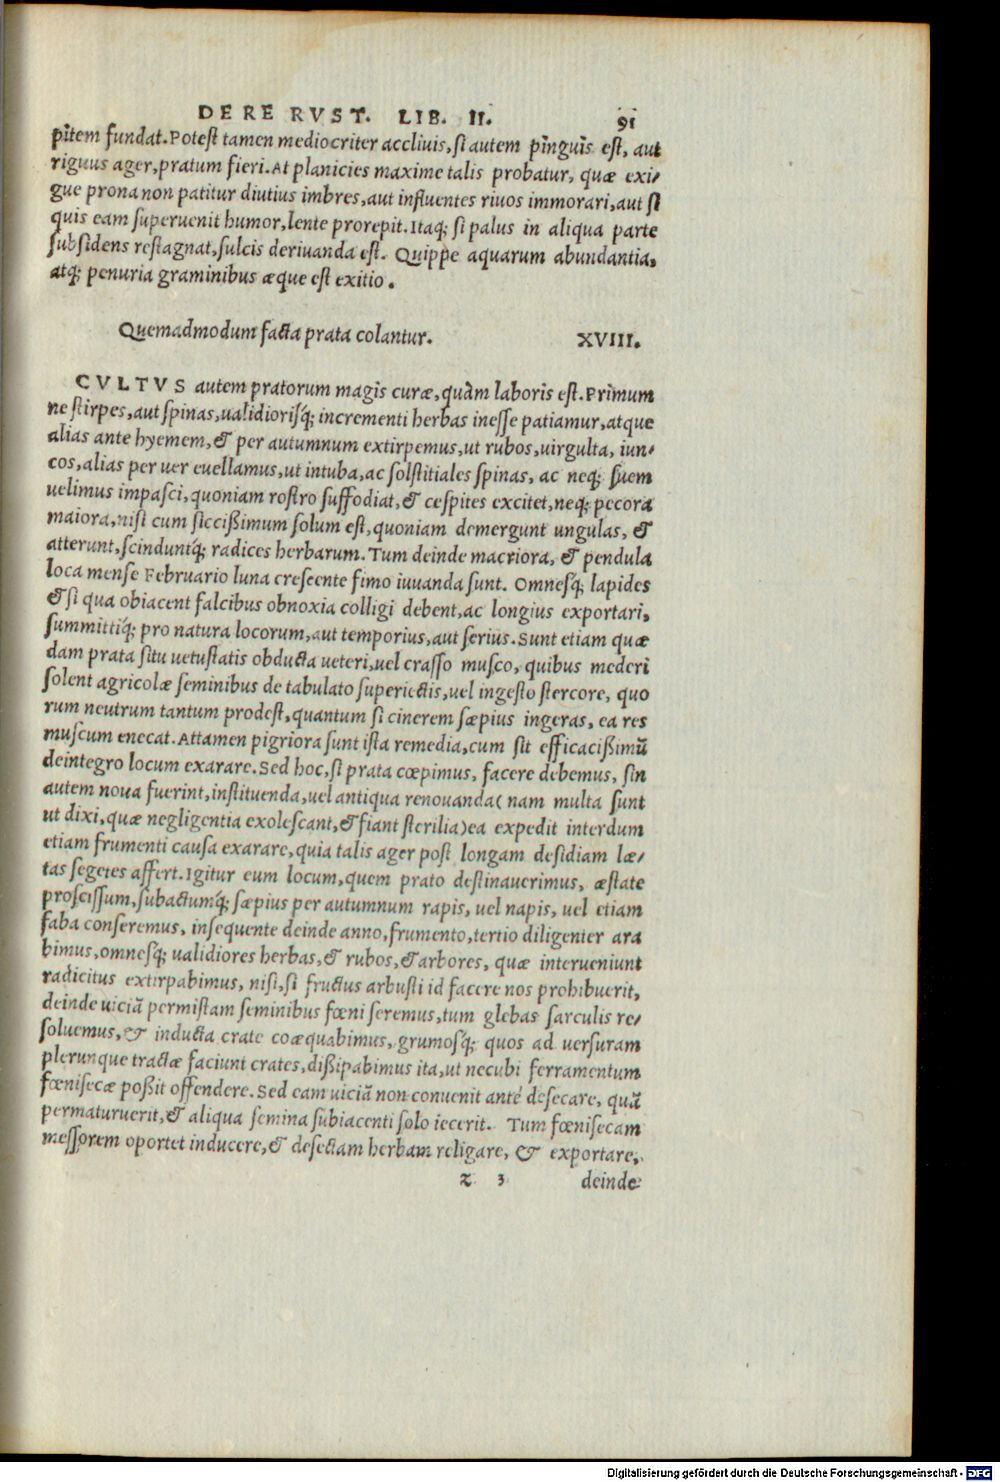 DE RE RVST. LIB. II. 91
pitem fundat. Potest tamen mediocriter accliuis, si autem pinguis est, aut
riguus ager, pratum fieri. At planicies maxime talis probatur, quæ exi/
gue prona non patitur diutius imbres, aut influentes riuos immorari, aut si
quis eam superuenit humor, lente prorepit. Itaq; si palus in aliqua parte
subsidens restagnat, sulcis deriuanda est. Quippe aquarum abundantia,
atq; penuria graminibus æque est exitio.
Quemadmodum facta prata colantur. XVIII.
CVLTVS autem pratorum magis curæ, quàm laboris est. Primum
ne stirpes, aut spinas, ualidiorisq́; incrementi herbas inesse patiamur, atque
alias ante hyemem, & per autumnum extirpemus, ut rubos, uirgulta, iun-
cos, alias per uer euellamus, ut intuba, ac solstitiales spinas, ac neq; suem
uelimus impasci, quoniam rostro suffodiat, & cespites excitet, neq; pecora
maiora, nisi cum siccißimum solum est, quoniam demergunt ungulas, &
atterunt, scinduntq́; radices herbarum. Tum deinde macriora, & pendula
loca mense Februario luna crescente fimo iuuanda sunt. Omnesq́; lapides
& si qua obiacent falcibus obnoxia colligi debent, ac longius exportari,
summittiq́; pro natura locorum, aut temporius, aut serius. Sunt etiam quæ
dam prata situ uetustatis obducta ueteri, uel crasso musco, quibus mederi
solent agricolæ seminibus de tabulato superiectis, uel ingesto stercore, quo
rum neutrum tantum prodest, quantum si cinerem sæpius ingeras, ea res
muscum enecat. Attamen pigriora sunt ista remedia, cum sit efficacißimū
deintegro locum exarare. Sed hoc, si prata cœpimus, facere debemus, sin
autem noua fuerint, instituenda, uel antiqua renouanda( nam multa sunt
ut dixi, quæ negligentia exolescant, & fiant sterilia) ea expedit interdum
etiam frumenti causa exarare, quia talis ager post longam desidiam læ/
tas segetes affert. Igitur eum locum, quem prato destinauerimus, æstate
proscissum, subactumq́; sæpius per autumnum rapis, uel napis, uel etiam
faba conseremus, insequente deinde anno, frumento, tertio diligenter ara
bimus, omnesq́; ualidiores herbas, & rubos, & arbores, quæ interueniunt
radicitus extirpabimus, nisi, si fructus arbusti id facere nos prohibuerit,
deinde uiciā permistam seminibus fœni seremus, tum glebas sarculis re/
soluemus, & inducta crate coæquabimus, grumosq́; quos ad uersuram
plerunque tractæ faciunt crates, dißipabimus ita, ut necubi ferramentum
fœnisecæ poßit offendere. Sed eam uiciā non conuenit antè desecare, quā
permaturuerit, & aliqua semina subiacenti solo iecerit. Tum fœnisecam
messorem oportet inducere, & desectam herbam religare, & exportare,
z 3 deinde
Digitalisierung gefördert durch die Deutsche Forschungsgemeinschaft - DFG